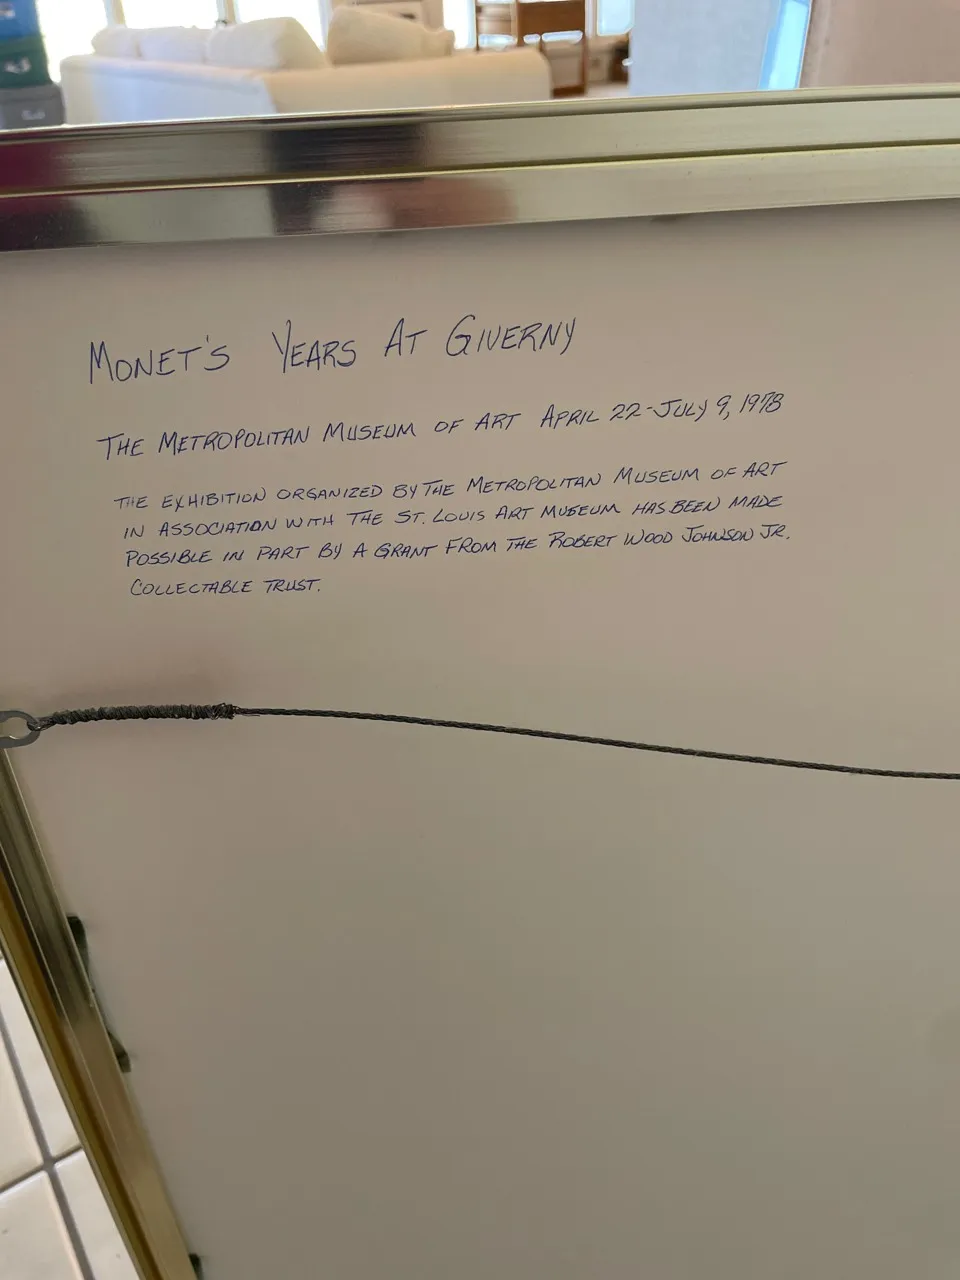 MONET'S YEARS AT GIVERNY
THE METROPOLITAN MUSEUM OF ART APRIL 22-JULY 9, 1978
THE EXHIBITION ORGANIZED BY THE METROPOLITAN MUSEUM OF ART
IN ASSOCIATION WITH THE ST. LOUIS ART MUSEUM HAS BEEN MADE
POSSIBLE IN PART BY A GRANT FROM THE ROBERT WOOD JOHNSON JR.
COLLECTABLE TRUST.